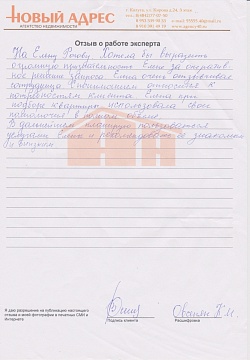 НОВЫЙ АДРЕС
АГЕНТСТВО НЕДВИЖИМОСТИ
Отзыв о работе эксперта
На Елену Рогову. Хотела бы выразить
огромную признательность Елене за оператив-
ное решение запроса. Елена очень отзывчивая
сотрудница. С вниманием относится к
потребностям клиента. Елена при
подборе квартиры использовала свои
в полном объеме.
В дальнейшем планирую пользоваться
услугами Елены и рекомендовать ее знакомым
и близким.
Я даю разрешение на публикацию настоящего
отзыва и моей фотографии в печатных СМИ и
Интернете
Подпись клиента
Расшифровка